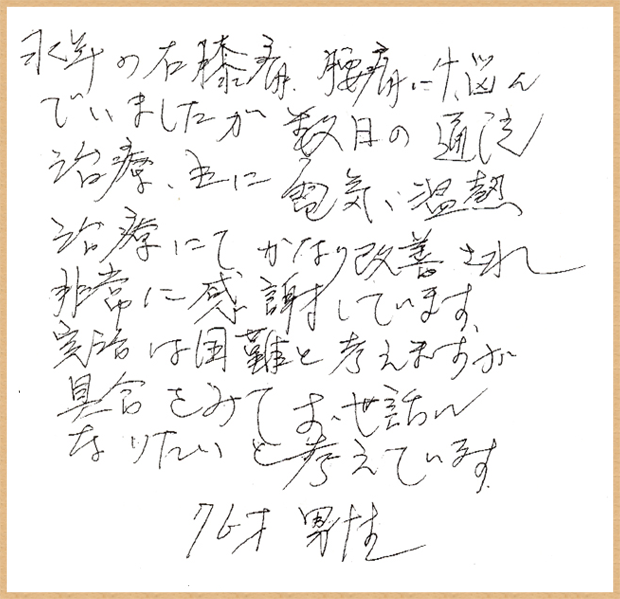 永年の右膝痛、腰痛に悩ん
でいましたが数日の通院
治療、主に電気、温熱
治療にてかなり改善され
非常に感謝しています。
完治は困難と考えますが
具合をみてお世話に
なりたいと考えています。
76才 男性